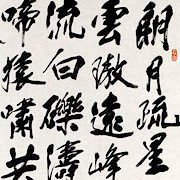 明月疏星
雲遠峰
流白礫濤
啼猿嘯共